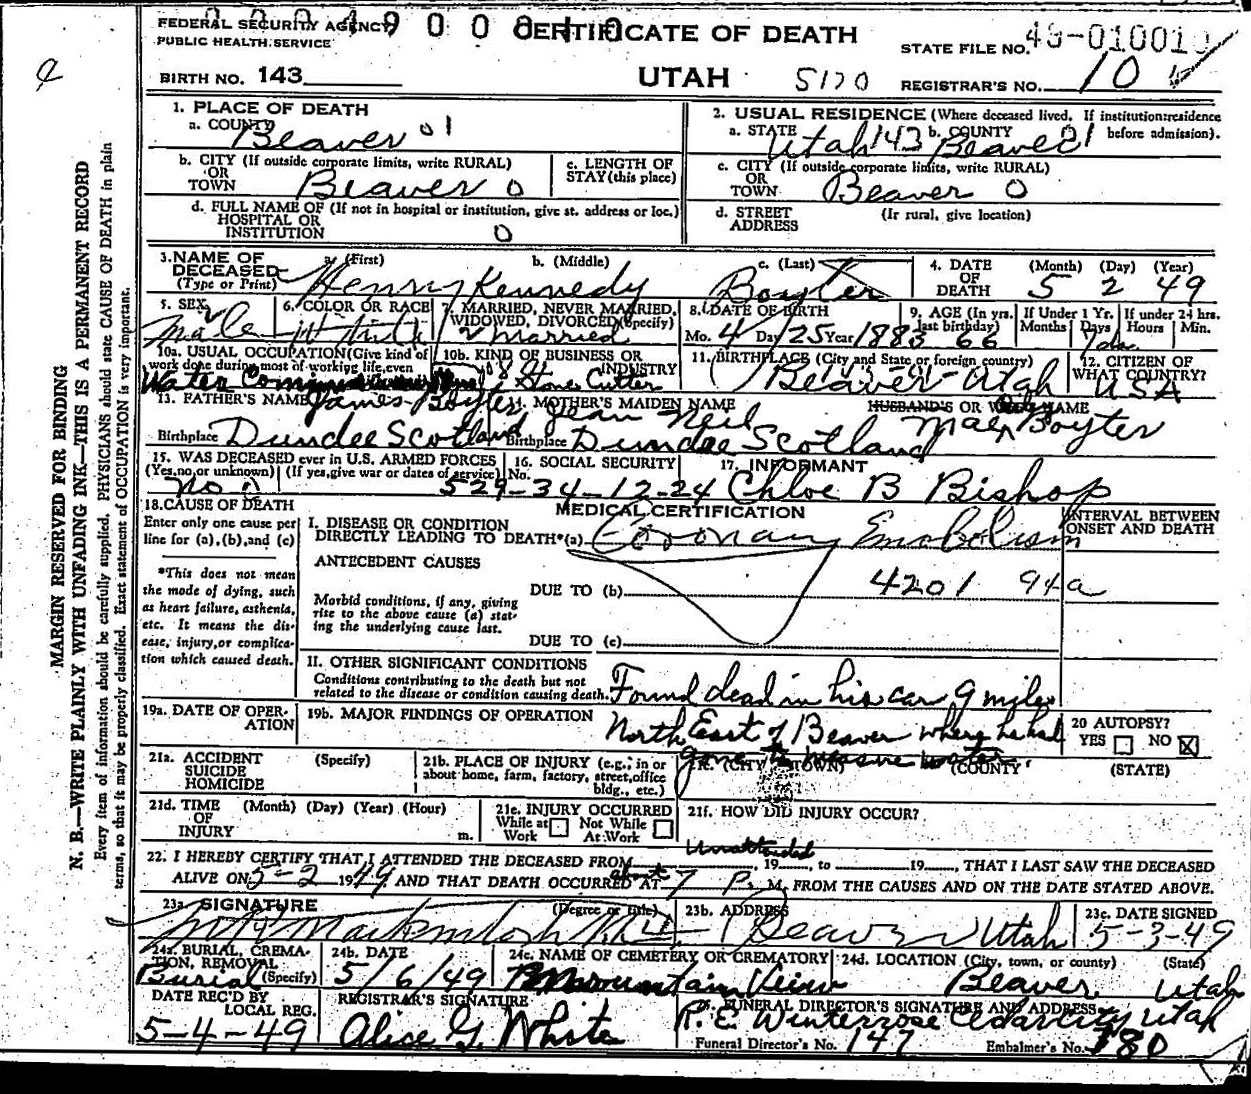 FEDERAL SECURITY AGENCY
PUBLIC HEALTH SERVICE
CERTIFICATE OF DEATH
STATE FILE NO. 49-010010
BIRTH NO. 143
UTAH 5170
REGISTRAR'S NO. 10
MARGIN RESERVED FOR BINDING
N. B.—WRITE PLAINLY WITH UNFADING INK—THIS IS A PERMANENT RECORD
Every item of information should be carefully supplied. PHYSICIANS should state CAUSE OF DEATH in plain
terms, so that it may be properly classified. Exact statement of OCCUPATION is very important.
1. PLACE OF DEATH
a. COUNTY Beaver 01
2. USUAL RESIDENCE (Where deceased lived. If institution:residence before admission).
a. STATE Utah 143 b. COUNTY Beaver 01
b. CITY (If outside corporate limits, write RURAL)
OR
TOWN Beaver 0
c. LENGTH OF
STAY (this place)
c. CITY (If outside corporate limits, write RURAL)
OR
TOWN Beaver 0
d. FULL NAME OF (If not in hospital or institution, give st. address or loc.)
HOSPITAL OR
INSTITUTION 0
d. STREET (If rural, give location)
ADDRESS
3. NAME OF DECEASED (Type or Print)
a. (First) b. (Middle) c. (Last)
Henry Kennedy Boyter
4. DATE OF DEATH (Month) (Day) (Year)
5 2 49
5. SEX Male
6. COLOR OR RACE White
7. MARRIED, NEVER MARRIED, WIDOWED, DIVORCED (Specify) Married
8. DATE OF BIRTH
Mo. 4 Day 25 Year 1883
9. AGE (In yrs. last birthday) 66
If Under 1 Yr. Months Days 7 da
If under 24 hrs. Hours Min.
10a. USUAL OCCUPATION (Give kind of work done during most of working life, even
Water
10b. KIND OF BUSINESS OR INDUSTRY
Stone Cutter
11. BIRTHPLACE (City and State or foreign country)
Beaver - Utah
12. CITIZEN OF WHAT COUNTRY?
USA
13. FATHER'S NAME James Boyter
Birthplace Dundee Scotland
14. MOTHER'S MAIDEN NAME Jean Neil
Birthplace Dundee Scotland
HUSBAND'S OR WIFE'S NAME
Mae Boyter
15. WAS DECEASED ever in U.S. ARMED FORCES
(Yes, no, or unknown) (If yes, give war or dates of service)
no
16. SOCIAL SECURITY No.
529-34-12-24
17. INFORMANT
Chloe B Bishop
18. CAUSE OF DEATH
Enter only one cause per line for (a), (b), and (c)
*This does not mean the mode of dying, such as heart failure, asthenia, etc. It means the disease, injury, or complication which caused death.
MEDICAL CERTIFICATION
INTERVAL BETWEEN ONSET AND DEATH
I. DISEASE OR CONDITION
DIRECTLY LEADING TO DEATH*(a) Coronary Embolism
ANTECEDENT CAUSES
DUE TO (b) 4201 94a
Morbid conditions, if any, giving rise to the above cause (a) stating the underlying cause last.
DUE TO (c)
II. OTHER SIGNIFICANT CONDITIONS
Conditions contributing to the death but not related to the disease or condition causing death.
Found dead in his car 9 miles
North East of Beaver where he had
gone to measure water.
19a. DATE OF OPERATION
19b. MAJOR FINDINGS OF OPERATION
20 AUTOPSY?
YES ☐ NO ☒
21a. ACCIDENT SUICIDE HOMICIDE (Specify)
21b. PLACE OF INJURY (e.g., in or about home, farm, factory, street, office bldg., etc.)
21c. (CITY OR TOWN) (COUNTY) (STATE)
21d. TIME OF INJURY (Month) (Day) (Year) (Hour) m.
21e. INJURY OCCURRED
While at Work ☐ Not While At Work ☐
21f. HOW DID INJURY OCCUR?
22. I HEREBY CERTIFY THAT I ATTENDED THE DECEASED FROM Unattended, 19, to 19, THAT I LAST SAW THE DECEASED
ALIVE ON 5-2 1949 AND THAT DEATH OCCURRED AT about 7 P. M. FROM THE CAUSES AND ON THE DATE STATED ABOVE.
23a. SIGNATURE (Degree or title)
23b. ADDRESS Beaver Utah
23c. DATE SIGNED 5-3-49
24a. BURIAL, CREMATION, REMOVAL (Specify) Burial
24b. DATE 5/6/49
24c. NAME OF CEMETERY OR CREMATORY Mountain View
24d. LOCATION (City, town, or county) (State)
Beaver, Utah
DATE REC'D BY LOCAL REG. 5-4-49
REGISTRAR'S SIGNATURE
Alice G. White
25. FUNERAL DIRECTOR'S SIGNATURE AND ADDRESS
R. E. Winterrose Cedar City Utah
Funeral Director's No. 147 Embalmer's No. 780